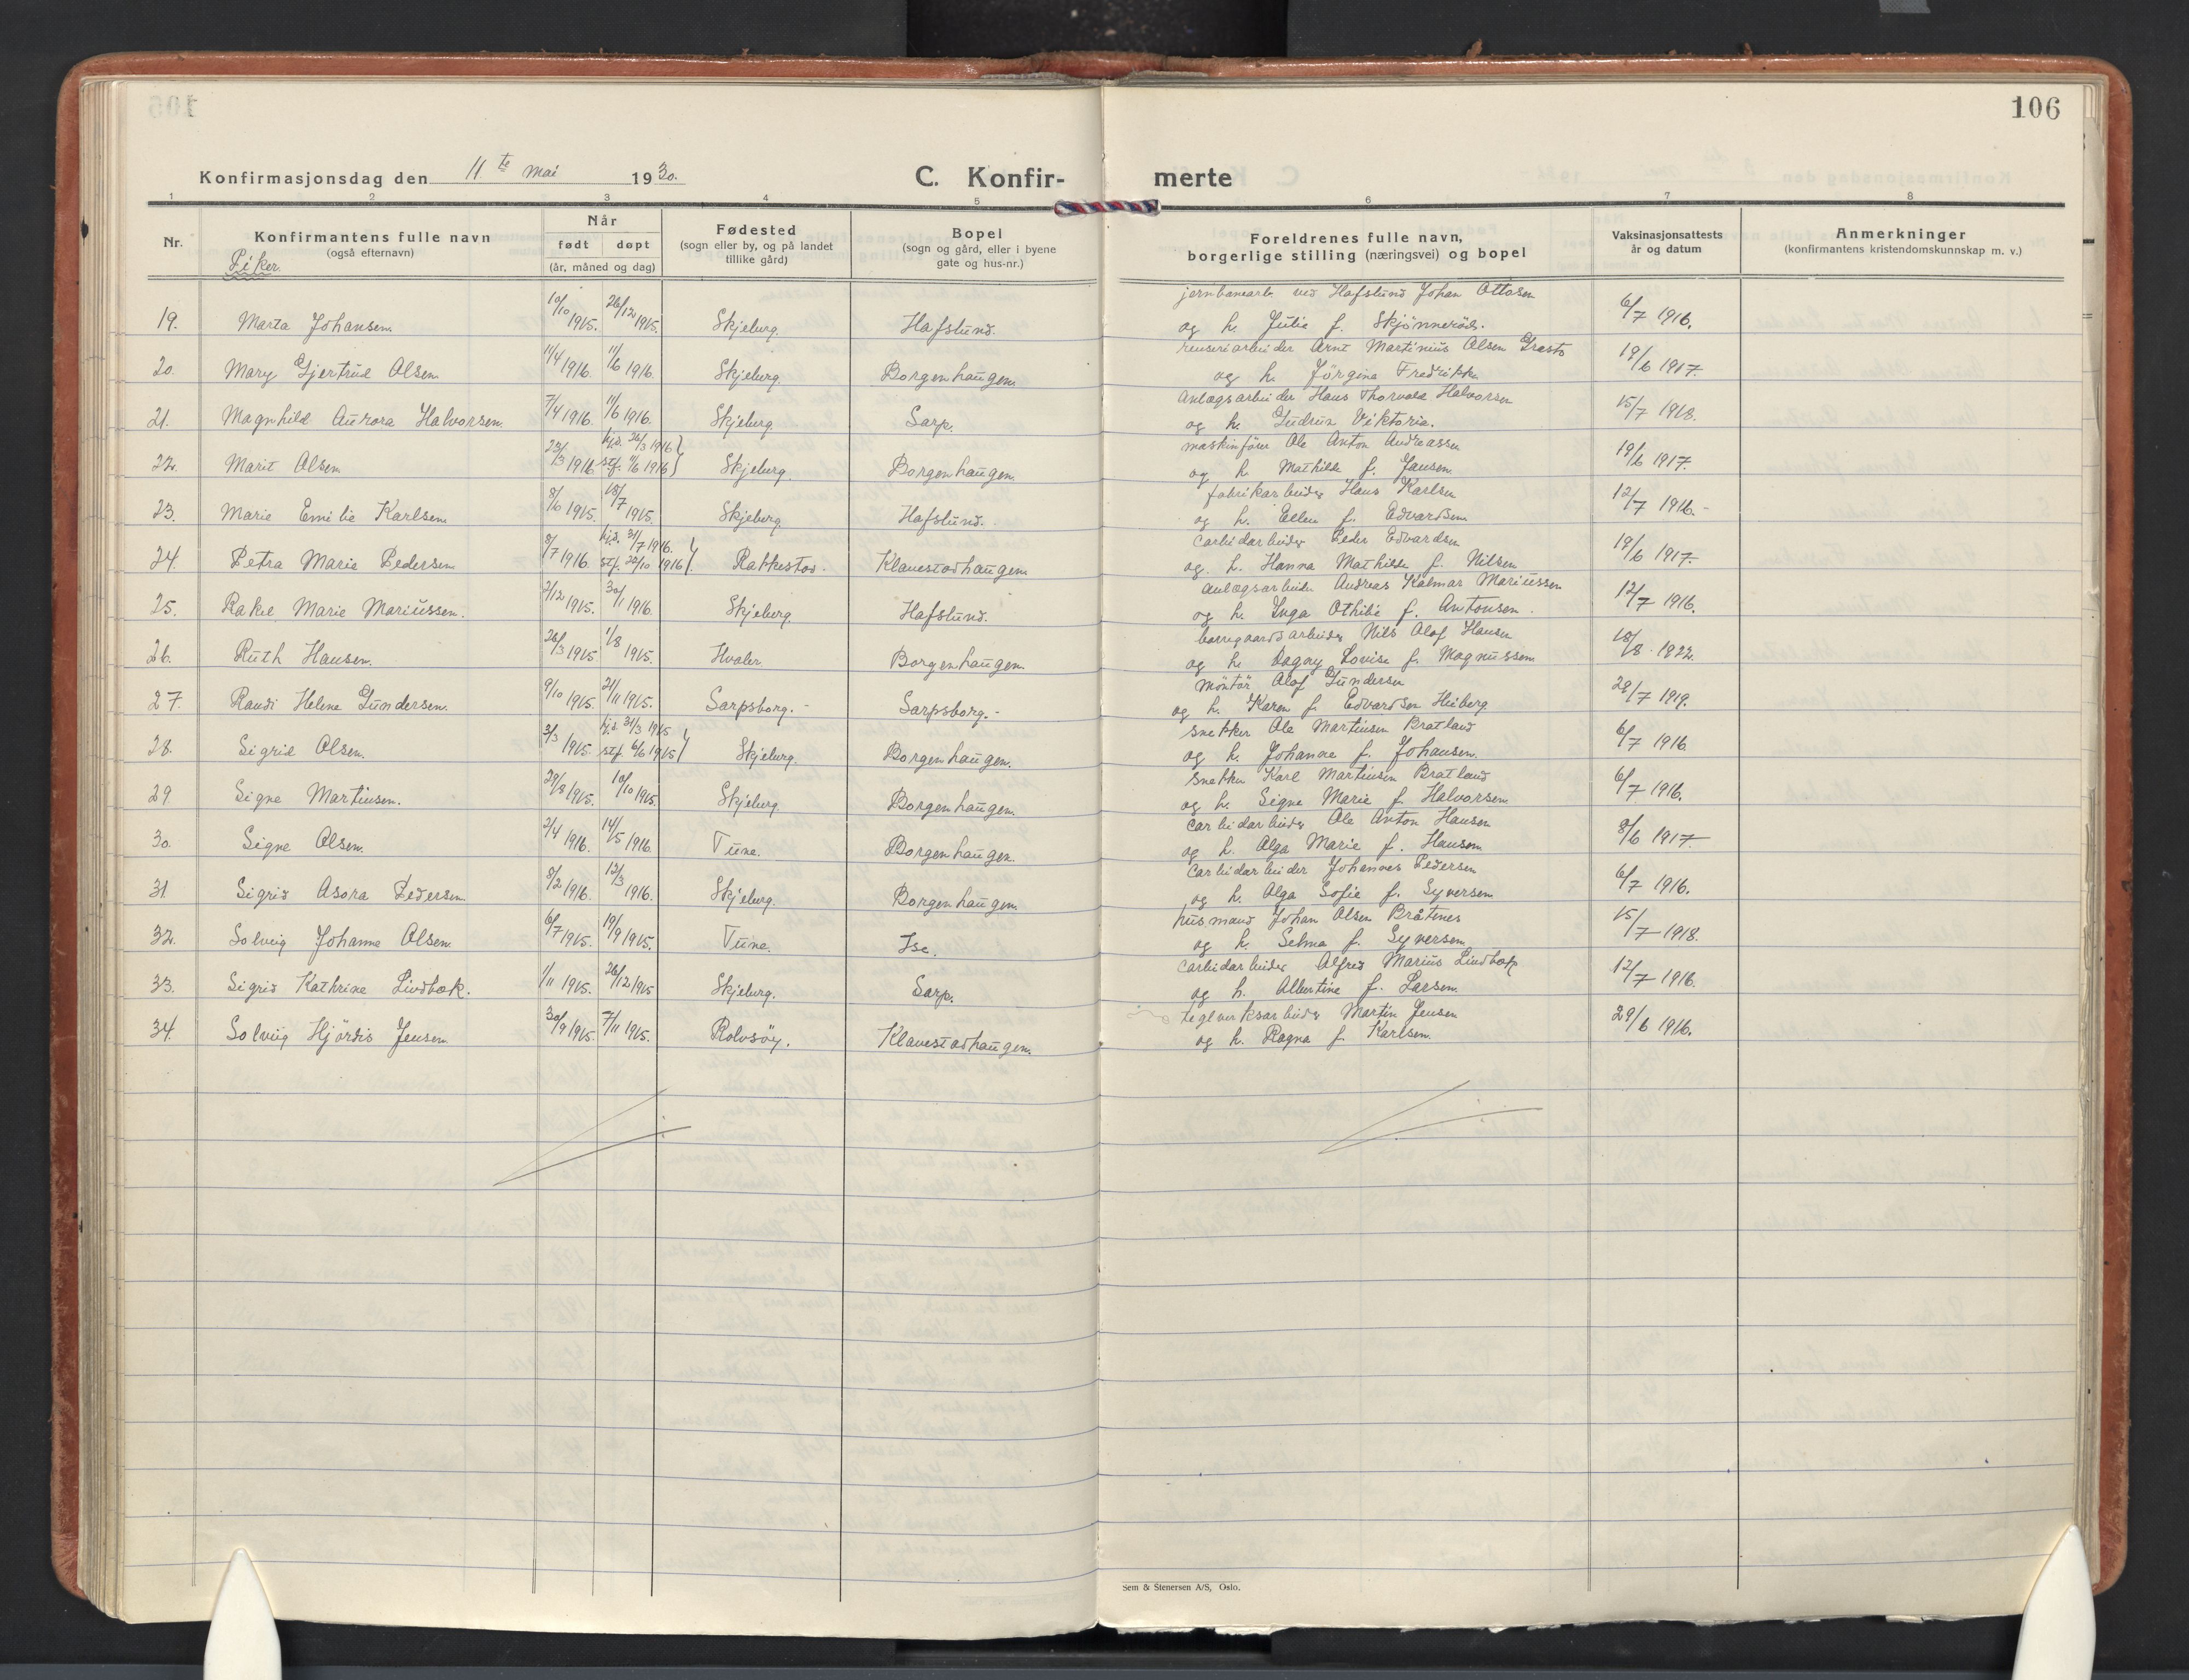 106
Konfirmasjonsdag den 11te mai 1930.
C. Konfir- merte
1 2 3 4 5 6 7 8
Nr.
Konfirmantens fulle navn
(også efternavn)
Piker
Når
født døpt
(år, måned og dag)
Fødested
(sogn eller by, og på landet
tillike gård)
Bopel
(sogn og gård, eller i byene
gate og hus-nr.)
Foreldrenes fulle navn,
borgerlige stilling (næringsvei) og bopel
Vaksinasjonsattests
år og datum
Anmerkninger
(konfirmantens kristendomskunnskap m. v.)
jernbanearb. ved Hafslund Johan Ottosen
19. Marta Johansen. 10/10 1915. 26/12 1915. Skjeberg. Hafslund. og h. Julie f. Skjønnerød. 6/7 1916.
renseriarbeider Arnt Martinius Olsen
20. Mary Gjertrud Olsen 11/4 1916. 11/6 1916. Skjeberg. Borgenhaugen. og h. Jørgine Fredrikke 19/6 1917.
Anlægsarbeider Hans Thorvald Halvorsen
21. Magnhild Aurora Halvorsen. 7/4 1916. 11/6 1916. Skjeberg. Sarp. og h. Gudrun Viktoria. 15/7 1918.
maskinfører Ole Anton Andreassen
22. Marit Olsen 23/3 1916 hjd. 26/3 1916 stf. 11/6 1916 Skjeberg. Borgenhaugen. og h. Mathilde f. Jansen. 19/6 1917.
fabrikarbeider Hans Karlsen
23. Marie Emilie Karlsen 8/6 1915. 18/7 1915. Skjeberg. Hafslund. og h. Ellen f. Edvardsen. 12/7 1916.-
Carbidarbeider Peder Edvardsen
24. Petra Marie Pedersen 8/7 1916. hjd. 31/7 1916. stf. 22/10 1916. Rakkestad. Klavestadhaugen. og h. Hanna Mathilde f. Nilsen 19/6 1917.
Anlægsarbeider Andreas Kalmar Mariussen
25. Rakel Marie Mariussen. 2/12 1915. 30/1 1916. Skjeberg. Hafslund. og h. Inga Othilie f. Antonsen. 12/7 1916.
borregaardsarbeider Nils Olaf Hansen
26. Ruth Hansen. 26/3 1915. 1/8 1915. Hvaler. Borgenhaugen. og h. Dagny Lovise f. Magnussen. 18/8 1922.
Montør Olaf Gundersen
27. Randi Helene Gundersen. 9/10 1915. 21/11 1915. Sarpsborg.- Sarpsborg.- og h. Karen f. Edvardsen Heiberg 28/7 1919.
snekker Ole Martinsen Bratland
28. Sigrid Olsen. 3/3 1915 hjd. 31/3 1915 stf. 6/6 1915 Skjeberg. Borgenhaugen. og h. Johanne f. Johansen. 6/7 1916
snekker Karl Martinsen Bratland
29. Signe Martinsen. 29/8 1915. 10/10 1915. Skjeberg. Borgenhaugen. og h. Signe Marie f. Halvorsen 6/7 1916.
Carbidarbeider Ole Anton Hansen
30. Signe Olsen. 2/4 1916. 14/5 1916. Tune. Borgenhaugen. og h. Olga Marie f. Hansen 8/6 1917
Carbidarbeider Johannes Pedersen
31. Sigrid Asora Pedersen 8/2 1916. 12/3 1916. Skjeberg. Borgenhaugen. og h. Olga Sofie f. Syversen 6/7 1916.
husmand Johan Olsen Bråtenes
32. Solveig Johanne Olsen. 6/7 1915. 19/9 1915. Tune. Ise. og h. Selma f. Syversen 15/7 1918.
Carbidarbeider Alfred Marius Lindbæk
33. Sigrid Kathrine Lindbæk. 1/11 1915. 26/12 1915 Skjeberg. Sarp. og h. Albertine f. Larsen. 12/7 1916.
teglverksarbeider Martin Jensen
34. Solveig Hjørdis Jensen 30/9 1915. 7/11 1915. Rolvsøy. Klavestadhaugen. og h. Ragna f. Karlsen. 29/6 1916.
Sem & Stenersen A/S, Oslo.